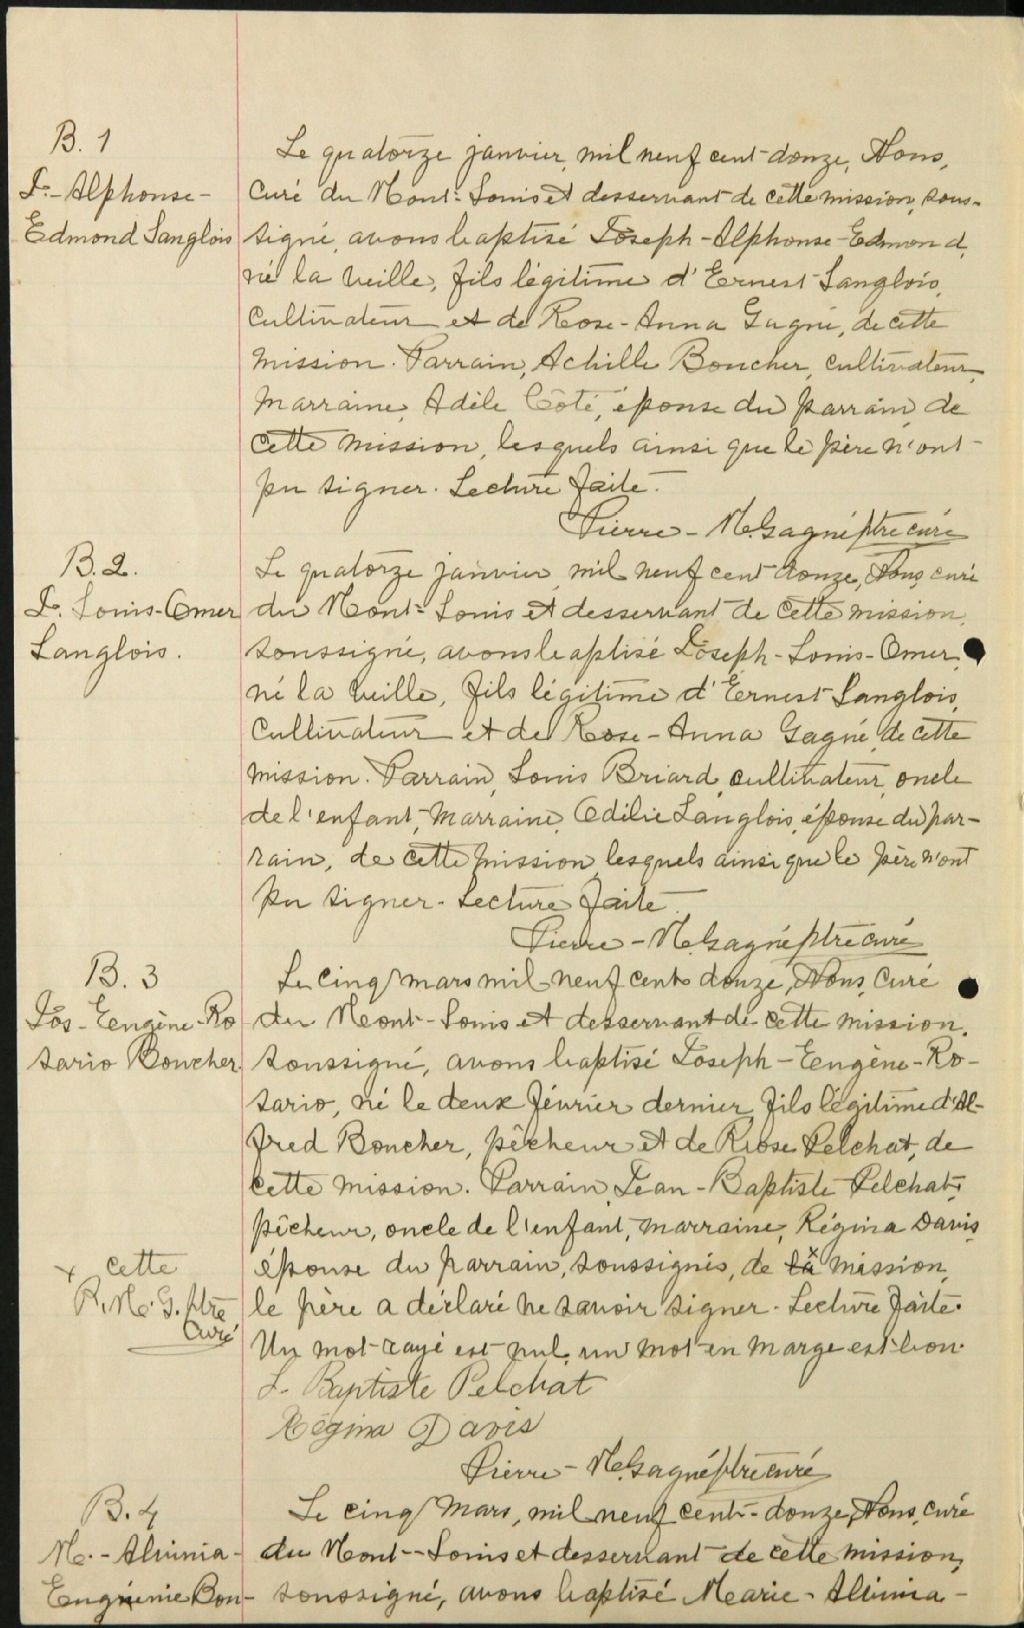 B. 1
J.-Alphonse-
Edmond Langlois
Le quatorze janvier, mil neuf cent-douze, Nous,
Curé du Mont-Louis et desservant de cette mission, sous-
signé, avons baptisé Joseph-Alphonse-Edmond,
né la veille, fils légitime d'Ernest Langlois,
Cultivateur et de Rose-Anna Gagné, de cette
mission. Parrain, Achille Boucher, cultivateur,
Marraine, Adèle Côté, épouse du parrain, de
cette mission, lesquels ainsi que le père n'ont
pu signer. Lecture faite.
Pierre-M. Gagné ptre curé
B. 2.
J. Louis-Omer
Langlois.
Le quatorze janvier, mil neuf cent douze, Nous, curé
du Mont-Louis et desservant de cette mission,
soussigné, avons baptisé Joseph-Louis-Omer,
né la veille, fils légitime d'Ernest Langlois,
Cultivateur et de Rose-Anna Gagné, de cette
mission. Parrain, Louis Briard, cultivateur, oncle
de l'enfant, Marraine, Odilie Langlois, épouse du par-
rain, de cette mission, lesquels ainsi que le père n'ont
pu signer. Lecture faite.
Pierre-M. Gagné ptre curé
B. 3
Jos-Eugène-Ro
sario Boucher.
Le cinq mars mil neuf cent douze, Nous, Curé
du Mont-Louis et desservant de cette mission,
soussigné, avons baptisé Joseph-Eugène-Ro-
sario, né le deux février dernier, fils légitime d'Al-
fred Boucher, pêcheur et de Rose Pelchat, de
cette mission. Parrain, Jean-Baptiste Pelchat,
pêcheur, oncle de l'enfant, marraine, Régina Davis,
épouse du parrain, soussignés, de la x mission,
le père a déclaré ne savoir signer. Lecture faite.
Un mot rayé est nul, un mot en marge est bon.
x cette
P. M. G. ptre
Curé
J. Baptiste Pelchat
Régina Davis
Pierre-M. Gagné ptre curé
B. 4
M.-Alvinia-
Eugénie Bou-
Le cinq Mars, mil neuf cent-douze, Nous, curé
du Mont-Louis et desservant de cette mission,
soussigné, avons baptisé Marie-Alvinia-